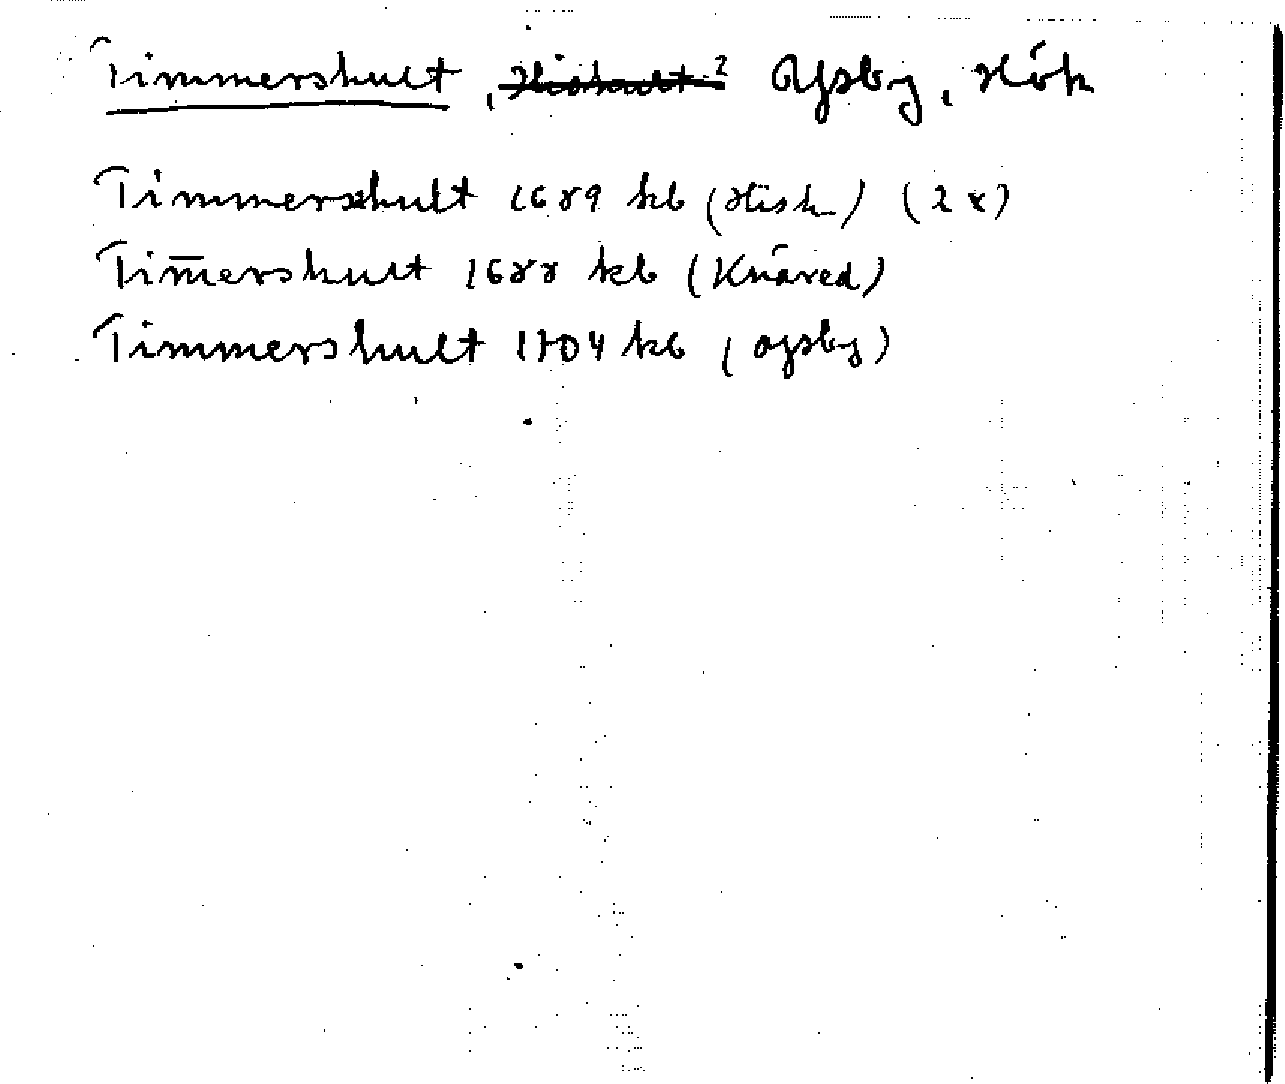 Timmershult, Hishult? Ysby, Hök
Timmershult 1689 kb (Hish.) (2 x)
Tim̄ershult 1688 kb (Knäred)
Timmershult 1704 kb (Ysby)